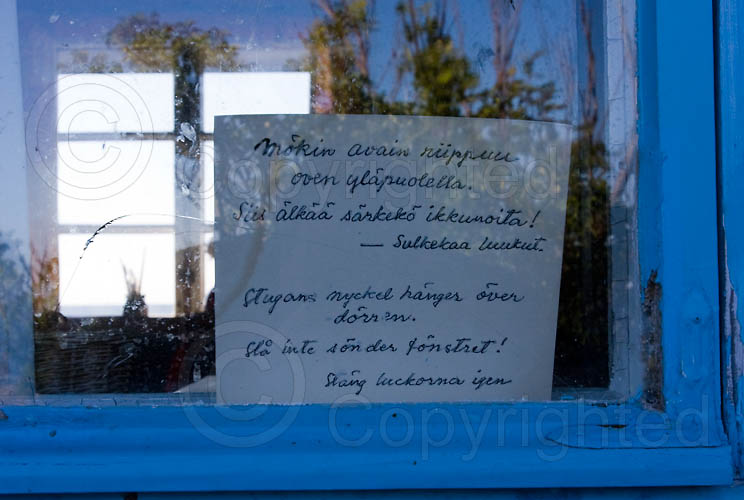 Mökin avain riippuu
oven yläpuolella.
Siis älkää särkekö ikkunoita!
— Sulkekaa luukut.
Stugans nyckel hänger över
dörren.
Slå inte sönder fönstret!
Stäng luckorna igen
© Copyrighted
© Copyrighted